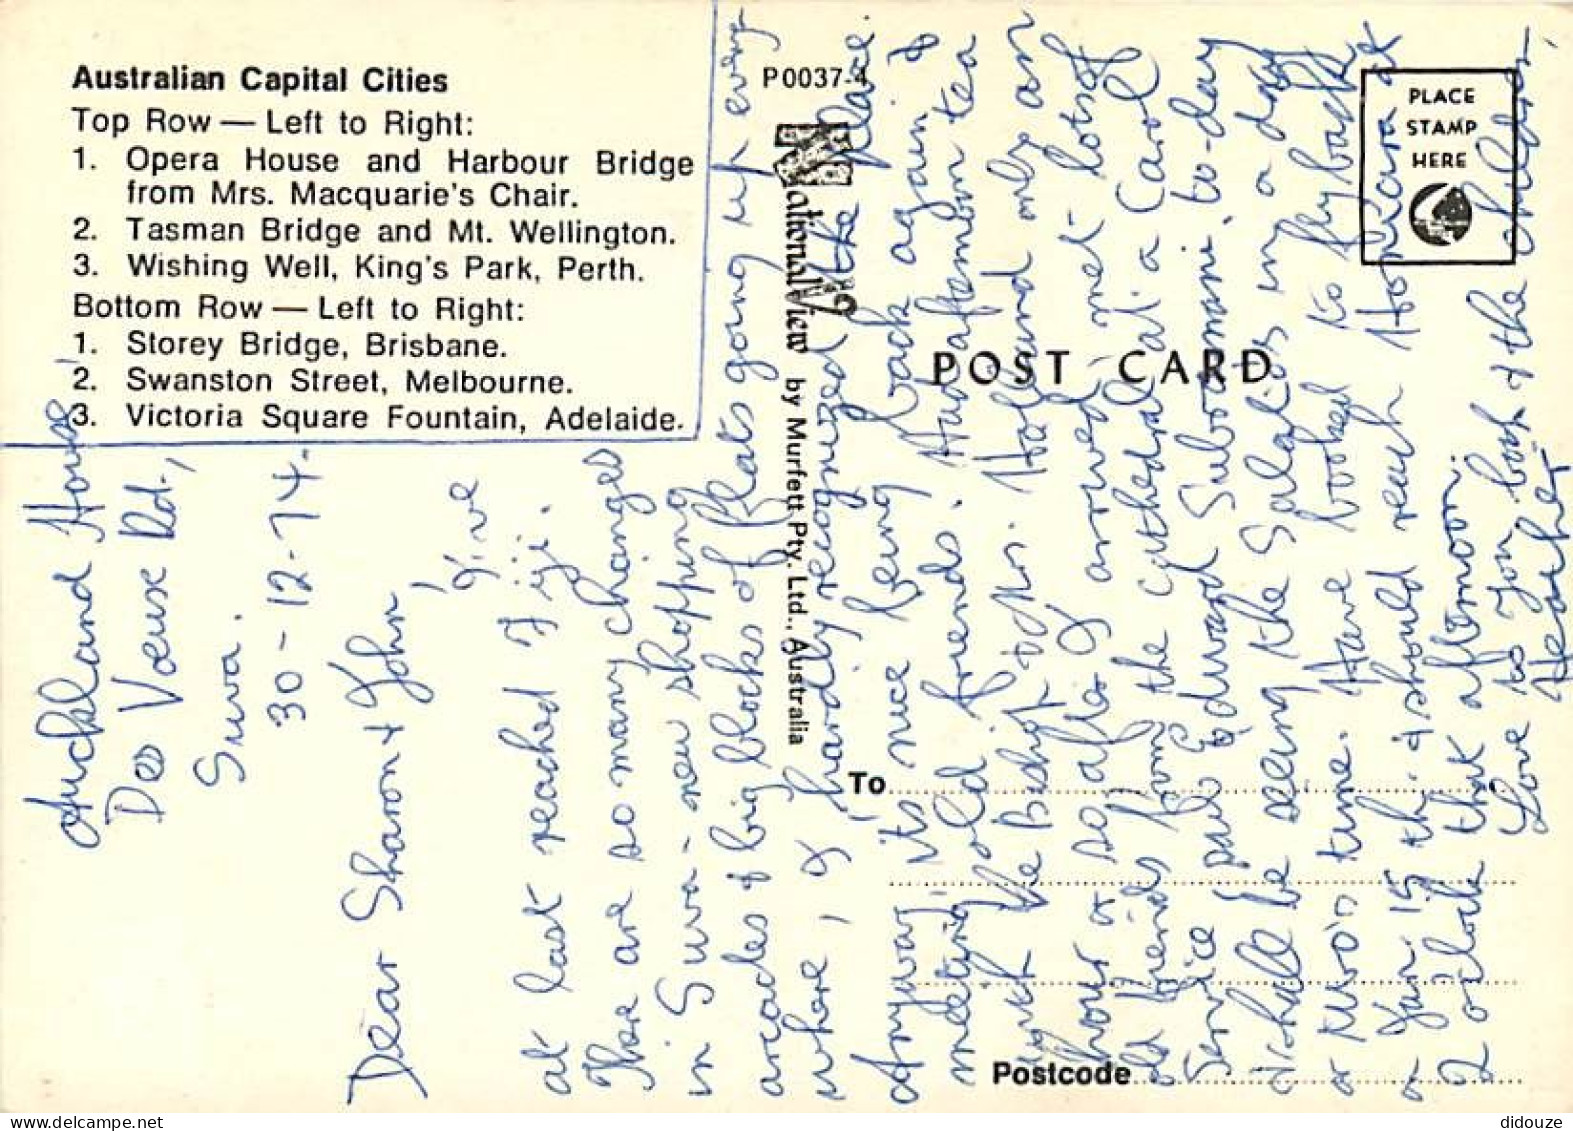 Australian Capital Cities
Top Row — Left to Right:
1. Opera House and Harbour Bridge
from Mrs. Macquarie's Chair.
2. Tasman Bridge and Mt. Wellington.
3. Wishing Well, King's Park, Perth.
Bottom Row — Left to Right:
1. Storey Bridge, Brisbane.
2. Swanston Street, Melbourne.
3. Victoria Square Fountain, Adelaide.
P0037-4
NationalView by Murfett Pty. Ltd., Australia
PLACE
STAMP
HERE
POST CARD
To
Postcode
Auckland House,
Des Voeux Rd.,
Suva.
30-12-74.
Dear Sharon & John,
I've
at last reached Fiji.
There are so many changes
in Suva - new shopping
arcades & big blocks of flats going up every
where, I hardly recognized the place.
Anyway, its nice being back again &
meeting old friends. Had afternoon tea
with the Bishop & Mrs. Holland only an
hour or so after I arrived, met lots of
old friends from the cathedral at a Carol
Service and Edward Subramani to-day
I shall be seeing the in a day
or two's time. Have booked to fly back
on Jan. 15th. & should reach Honiara at
2 o'clock that afternoon.
Love to you both & the children,
Heather
didouze